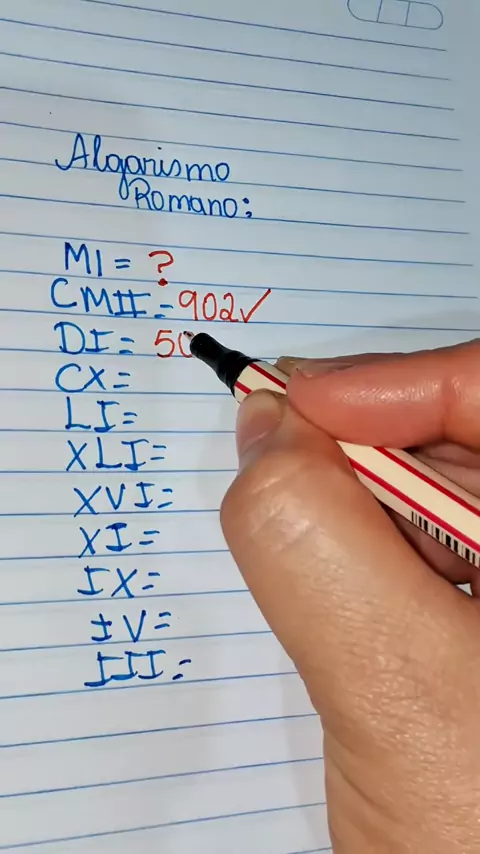 Algarismo
Romano:
MI = ?
CMII = 902✓
DI = 50
CX =
LI =
XLI =
XVI =
XI =
IX =
IV =
III =